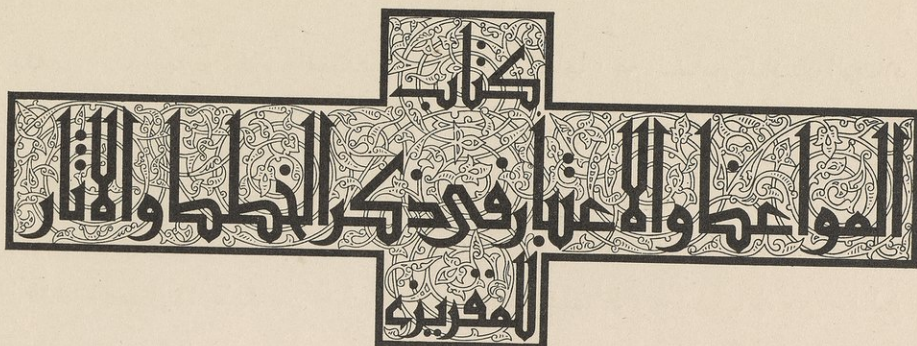 كتاب
المواعظ والاعتبار في ذكر الخطط والاثار
للمقريزي